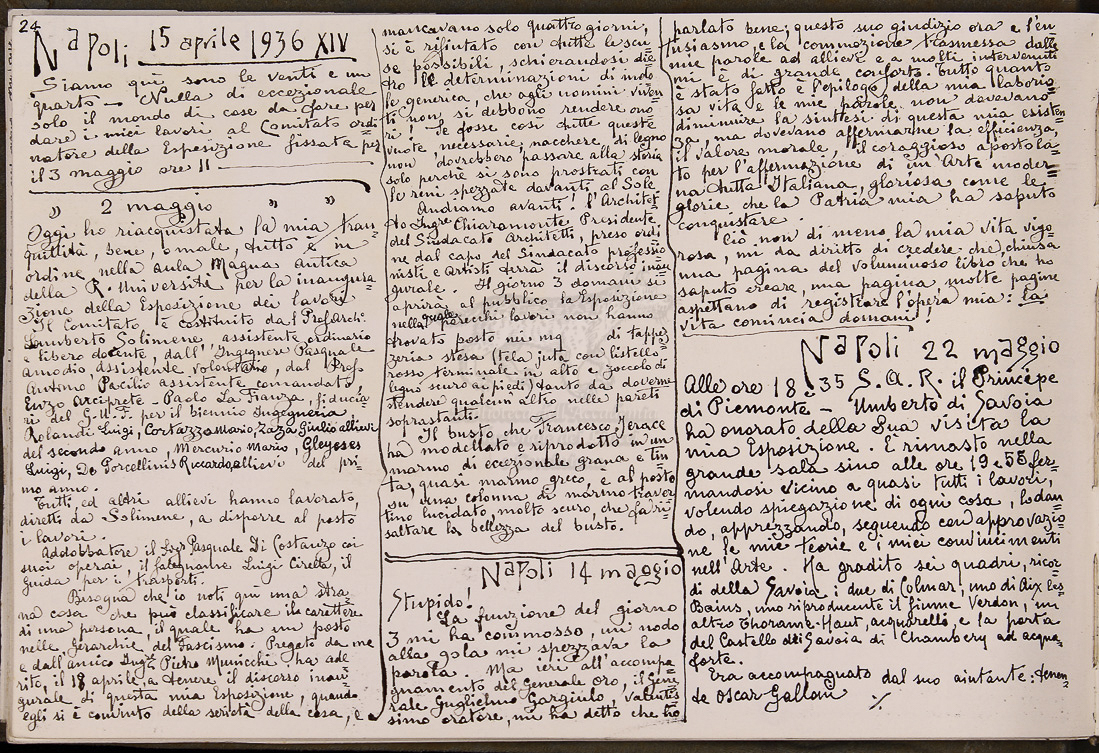 24
Napoli, 15 aprile 1936 XIV
Siamo qui sono le venti e un
quarto — Nulla di eccezionale
solo il mondo di cose da fare per
dare i miei lavori al Comitato ordi=
natore della Esposizione fissata per
il 3 maggio ore 11
" 2 maggio " "
Oggi ho riacquistata la mia tran=
quillità, bene, o male, tutto è in
ordine nella Aula Magna Antica
della R. Università per la inaugura=
zione della Esposizione dei lavori
Il Comitato è costituito dal Prof. Archi.
Lamberto Solimene, assistente ordinario
e libero docente, dall'Ingegnere Pasquale
Amodio, assistente volontario, dal Prof.
Antino Pacilio assistente comandato,
Enzo Arciprete - Paolo La Franza, fiducia=
ri del G.U.F. per il biennio Ingegneria,
Rolandi Luigi, Cortazzo Mario, Zaza Giulio allievi
del secondo anno, Mercurio Mario, Gleyeses
Luigi, De Porcellinis Riccardo allievi del pri=
mo anno.
Tutti, ed altri allievi hanno lavorato,
diretti da Solimene, a disporre al posto
i lavori.
Addobbatore il Pasquale Di Costanzo coi
suoi operai, il falegname Luigi Ciretta, il
guida per i trasporti.
Bisogna che io noti qui una stra=
na cosa che può classificare il carattere
di una persona, il quale ha un posto
nelle gerarchie del Fascismo. Pregato da me
e dall'amico Ing. Pietro Municchi ha ade
rito, il 18 aprile, a tenere il discorso inau
gurale di questa mia Esposizione, quando
egli si è convinto della serietà della cosa, e
mancavano solo quattro giorni,
si è rifiutato con tutte le scu=
se possibili, schierandosi die
tro le determinazioni di indo
le generica, che agli uomini viven
ti non si debbono rendere ono=
ri! Se fosse così tutte queste
vuote, necessarie, nacchere di legno
non dovrebbero passare alla storia
solo perchè si sono prostrati con
le reni spezzate davanti al Sole
Andiamo avanti! l'Architet
to Ingre Chiaromonte Presidente
del Sindacato Architetti, preso ordi
ne dal capo del Sindacato professio=
nisti e Artisti terrà il discorso inau
gurale. Il giorno 3 domani si
aprirà al pubblico la Esposizione
nella quale parecchi lavori non hanno
trovato posto nei mq di tappez
zeria stesa (tela juta con listello
rosso terminale in alto e zoccolo di
legno scuro ai piedi) tanto da doverne
stendere qualcun altro nelle pareti
soprastanti.
Il busto che Francesco Jerace
ha modellato è riprodotto in un
marmo di eccezionale grana e tin
ta, quasi marmo greco, e al posto
su una colonna di marmo traver
tino lucidato, molto scuro, che fa ri=
saltare la bellezza del busto.
Napoli 14 maggio
Stupido!
La funzione del giorno
3 mi ha commosso, un nodo
alla gola mi spezzava la
parola. Ma ieri all'accompa
gnamento del Generale Oro, il Gene
rale Guglielmo Gargiulo, valentis
simo oratore, mi ha detto che ho
parlato bene; questo suo giudizio ora e l'en=
tusiasmo, e la commozione trasmessa dalle
mie parole ad allievi e a molti intervenuti
mi è di grande conforto. Tutto quanto
è stato fatto è l'epilogo della mia laborio
sa vita e le mie parole non dovevano
diminuire la sintesi di questa mia esisten
za, ma dovevano affermarne la efficienza,
il valore morale, il coraggioso apostola=
to per l'affermazione di un'Arte moder=
na tutta Italiana, gloriosa come le
glorie che la Patria mia ha saputo
conquistare.
Ciò non di meno la mia vita vigo=
rosa, mi da diritto di credere che, chiusa
una pagina del voluminoso libro che ho
saputo creare, una pagina, molte pagine
aspettano di registrare l'opera mia: la
vita comincia domani!
Napoli 22 maggio
Alle ore 18,35 S.A.R. il Principe
di Piemonte — Umberto di Savoia
ha onorato della Sua visita la
mia Esposizione. È rimasto nella
grande sala sino alle ore 19 e 55 fer=
mandosi vicino a quasi tutti i lavori,
volendo spiegazione di ogni cosa, lodan=
do, apprezzando, seguendo con approvazio=
ne le mie teorie e i miei convincimenti
nell'Arte. Ha gradito sei quadri, ricor=
di della Savoia; i due di Colmar, uno di Aix les
Bains, uno riproducente il fiume Verdon, un
altro Thorame-Haut, acquarelli, e la porta
del Castello dei Savoia di Chambery ad acqua=
forte.
Era accompagnato dal suo aiutante: tenen=
te Oscar Gallon %